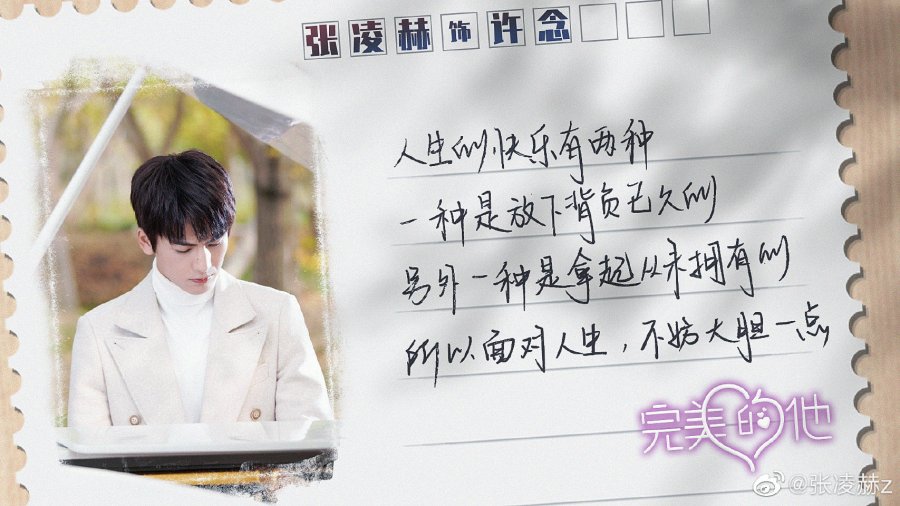 张凌赫饰许念
人生的快乐有两种
一种是放下背负已久的
另外一种是拿起从未拥有的
所以面对人生，不妨大胆一点
完美的他
@张凌赫z